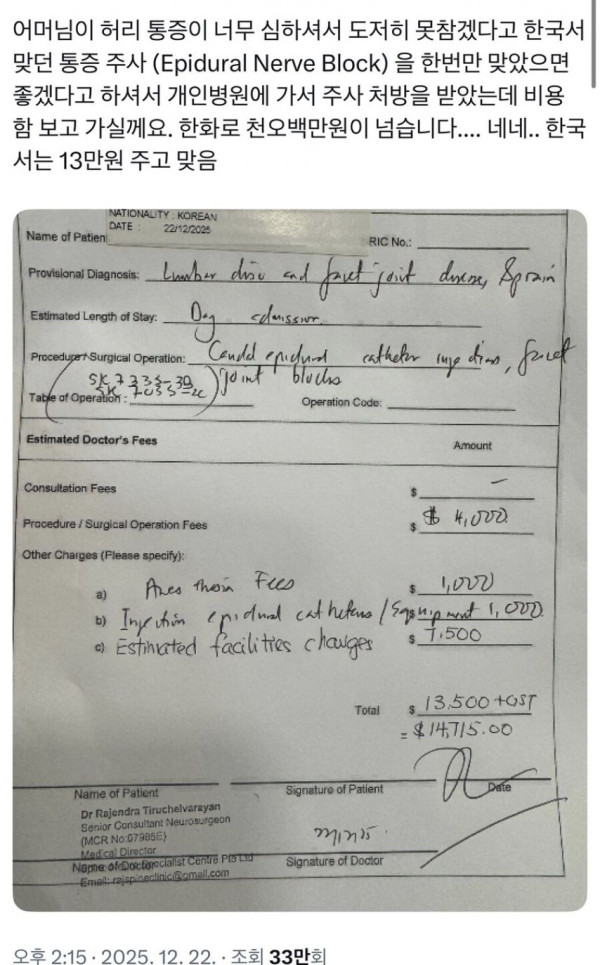 어머님이 허리 통증이 너무 심하셔서 도저히 못참겠다고 한국서
맞던 통증 주사 (Epidural Nerve Block) 을 한번만 맞았으면
좋겠다고 하셔서 개인병원에 가서 주사 처방을 받았는데 비용
함 보고 가실께요. 한화로 천오백만원이 넘습니다.... 네네.. 한국
서는 13만원 주고 맞음
NATIONALITY : KOREAN
DATE : 22/12/2025
Name of Patien
RIC No.:
Provisional Diagnosis: Lumbar disc and facet joint disease, Sprain
Estimated Length of Stay: Day admission
Procedure / Surgical Operation: Caudal epidural catheter injections, facet
joint blocks
Table of Operation :
Operation Code:
Estimated Doctor's Fees
Amount
Consultation Fees $ —
Procedure / Surgical Operation Fees $ $ 4,000
Other Charges (Please specify):
a) Anesthesia Fees $ 1,000
b) Injection epidural catheters / Equipment 1,000
c) Estimated facilities charges $ 7,500
Total $ 13,500 + GST
= $14,715.00
Name of Patient
Signature of Patient
Date
Dr Rajendra Tiruchelvarayan
Senior Consultant Neurosurgeon
(MCR No:07985E)
Medical Director
Name of Doctor
Specialist Centre Pte Ltd
Email: rajspineclinic@gmail.com
Signature of Doctor
오후 2:15 · 2025. 12. 22. · 조회 33만회